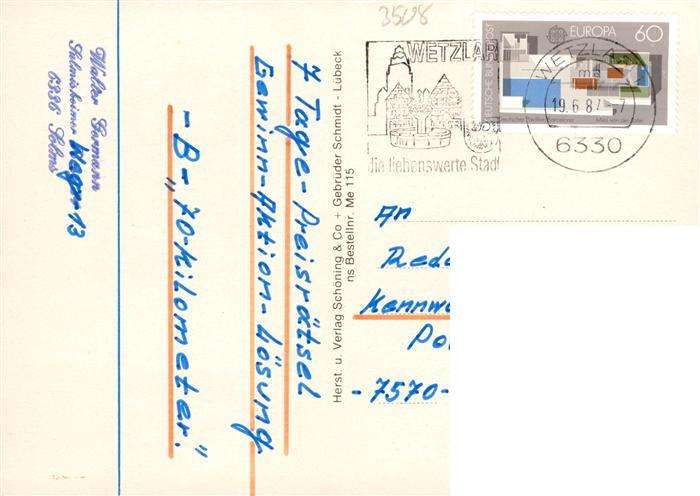 3508
WETZLAR
die liebenswerte Stadt
DEUTSCHE BUNDESPOST
EUROPA 60
WETZLAR
19.6.87
6330
An
Kennw
Po
-7570-
Herst. u. Verlag Schöning & Co + Gebrüder Schmidt - Lübeck
ns Bestellnr. Me 115
7 Tage-Preisrätsel
Gewinn-Aktion-Lösung
-B- "70-Kilometer."
Walter Germann
Solmsheimer Weg 13
6336 Solms